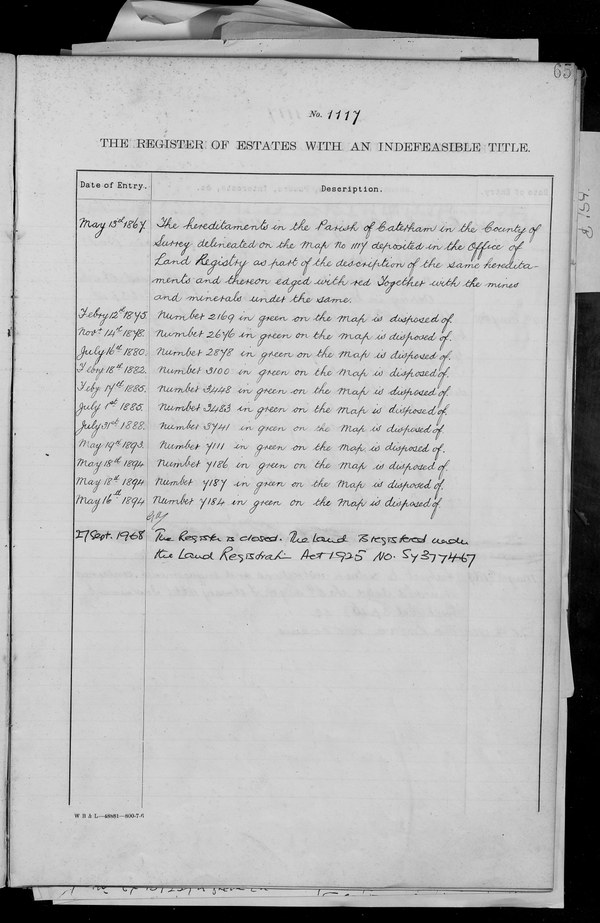 65
No. 1117
THE REGISTER OF ESTATES WITH AN INDEFEASIBLE TITLE.
Date of Entry. Description.
May 13th 1867. The hereditaments in the Parish of Caterham in the County of
Surrey delineated on the Map No 1117 deposited in the Office of
Land Registry as part of the description of the same heredita-
ments and thereon edged with red Together with the mines
and minerals under the same.
Febry 12th 1875. Number 2169 in green on the Map is disposed of.
Novr 14th 1878. Number 2676 in green on the Map is disposed of.
July 16th 1880. Number 2878 in green on the Map is disposed of.
Febry 18th 1882. Number 3100 in green on the Map is disposed of.
Feby 17th 1885. Number 3448 in green on the Map is disposed of.
July 1st 1885. Number 3483 in green on the Map is disposed of.
July 31st 1888. Number 3741 in green on the Map is disposed of.
May 19th 1893. Number 7111 in green on the Map is disposed of.
May 18th 1894 Number 7186 in green on the Map is disposed of.
May 18th 1894 Number 7187 in green on the Map is disposed of.
May 16th 1894 Number 7184 in green on the Map is disposed of.
27 Sept. 1968 The Register is closed. The land is registered under
the Land Registration Act 1925 No. Sy377467
W B & L—48681—600-7-6